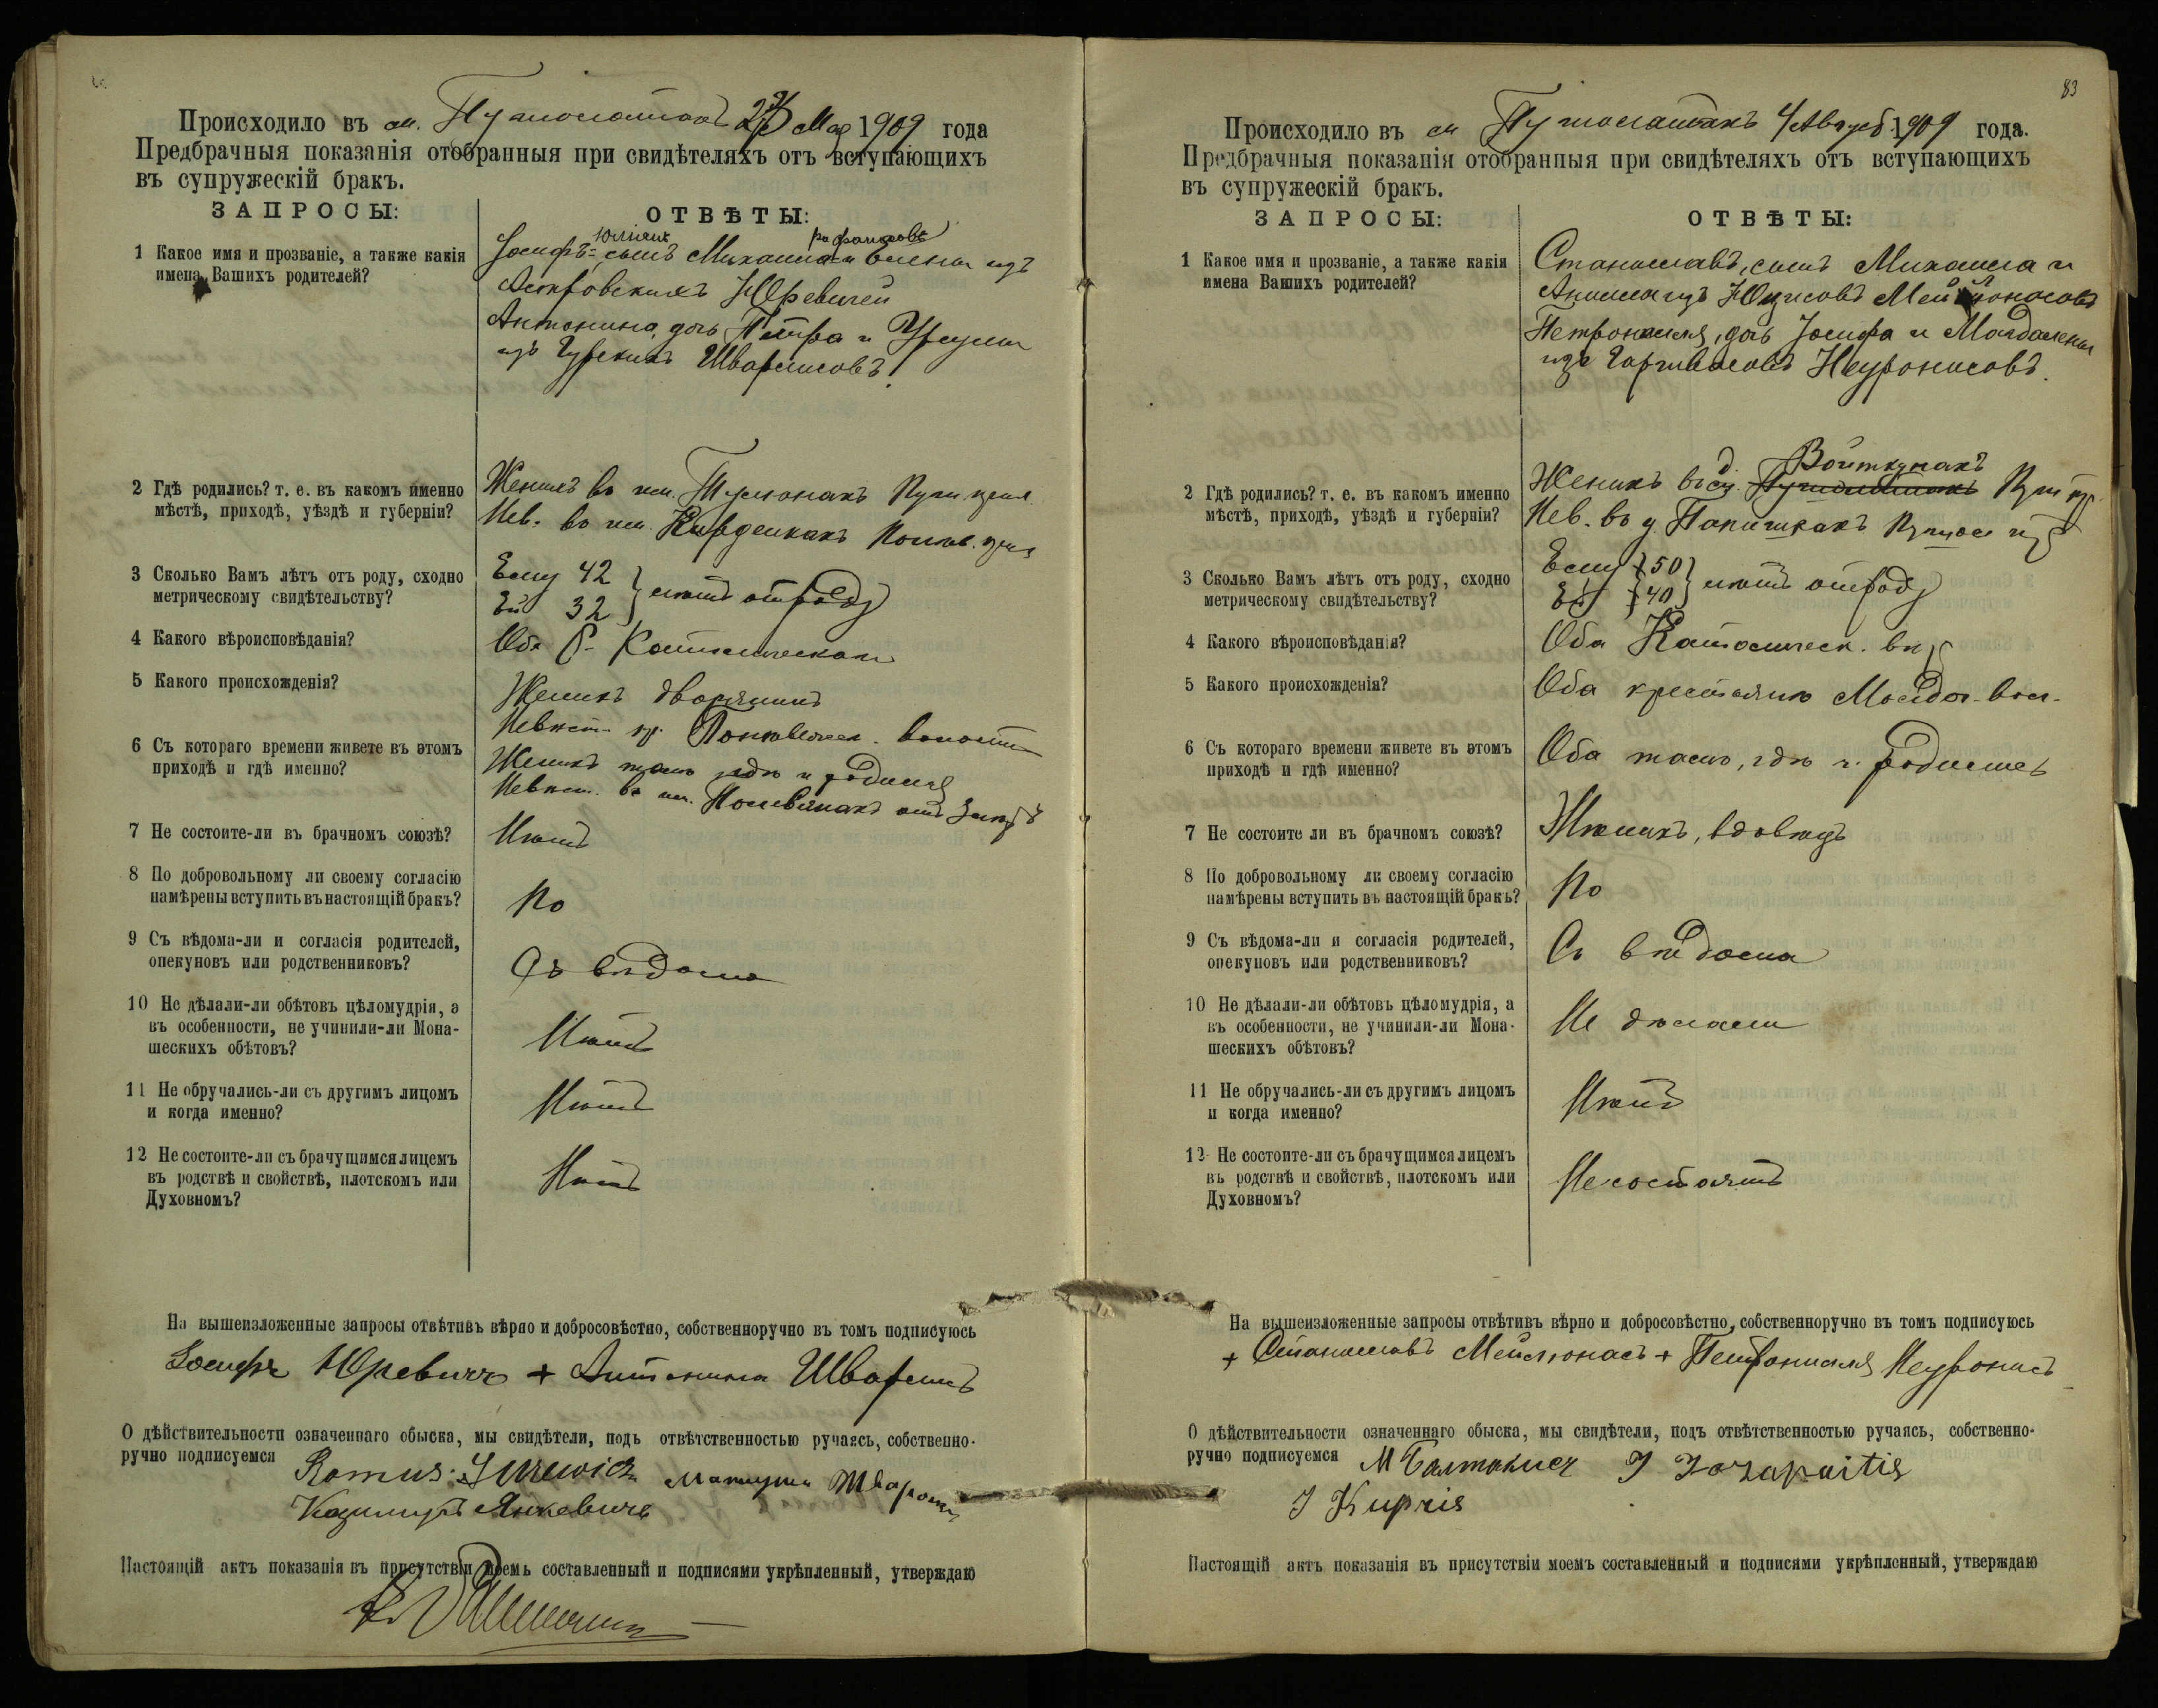 Происходило въ м. Путолотахъ 23 Мар 1909 года
Предбрачныя показанія отобранныя при свидѣтеляхъ отъ вступающихъ
въ супружескій бракъ.
ЗАПРОСЫ:
ОТВѢТЫ:
1 Какое имя и прозваніе, а также какія
имена Вашихъ родителей?
Іосифъ-Юліанъ, сынъ Михаила и Елены изъ
Юревичей
Антонина, дочь Петра и Урсулы
изъ Шварлисовъ.
2 Гдѣ родились? т. е. въ какомъ именно
мѣстѣ, приходѣ, уѣздѣ и губерніи?
Женихъ въ им.
Нев. въ им.
3 Сколько Вамъ лѣтъ отъ роду, сходно
метрическому свидѣтельству?
Ему 42
Ей 32 } лѣтъ отъ роду
4 Какого вѣроисповѣданія?
Оба Р. Католическаго
5 Какого происхожденія?
Женихъ дворянинъ
Невѣст. кр. волости
6 Съ котораго времени живете въ этомъ
приходѣ и гдѣ именно?
Женихъ тамъ гдѣ и родился
Невѣст. въ им.
7 Не состоите-ли въ брачномъ союзѣ?
Нѣтъ
8 По добровольному ли своему согласію
намѣрены вступить въ настоящій бракъ?
По
9 Съ вѣдома-ли и согласія родителей,
опекуновъ или родственниковъ?
Съ вѣдома
10 Не дѣлали-ли обѣтовъ цѣломудрія, а
въ особенности, не учинили-ли Мона-
шескихъ обѣтовъ?
Нѣтъ
11 Не обручались-ли съ другимъ лицомъ
и когда именно?
Нѣтъ
12 Не состоите-ли съ брачущимся лицемъ
въ родствѣ и свойствѣ, плотскомъ или
Духовномъ?
Нѣтъ
На вышеизложенные запросы отвѣтивъ вѣрно и добросовѣстно, собственноручно въ томъ подписуюсь
Іосифъ Юревичъ + Антонина Шварлисъ
О дѣйствительности означеннаго обыска, мы свидѣтели, подъ отвѣтственностью ручаясь, собственно-
ручно подписуемся Romus Jurewicz
Казимиръ Янкевичъ
Настоящій актъ показанія въ присутствіи моемъ составленный и подписями укрѣпленный, утверждаю
83
Происходило въ м Путолатахъ 4 Август. 1909 года.
Предбрачныя показанія отобранныя при свидѣтеляхъ отъ вступающихъ
въ супружескій бракъ.
ЗАПРОСЫ:
ОТВѢТЫ:
1 Какое имя и прозваніе, а также какія
имена Вашихъ родителей?
Станиславъ, сынъ Михаила и
Петронелля, дочь Іосифа и Магдалены
изъ Неуронисовъ.
2 Гдѣ родились? т. е. въ какомъ именно
мѣстѣ, приходѣ, уѣздѣ и губерніи?
Женихъ въ д. Войткунахъ
Нев. въ д.
3 Сколько Вамъ лѣтъ отъ роду, сходно
метрическому свидѣтельству?
Ему 50
Ей 40 } лѣтъ отъ роду
4 Какого вѣроисповѣданія?
Оба Католическ. вѣр
5 Какого происхожденія?
Оба крестьяне вол.
6 Съ котораго времени живете въ этомъ
приходѣ и гдѣ именно?
Оба тамъ, гдѣ и родились
7 Не состоите ли въ брачномъ союзѣ?
Женихъ, вдовецъ
8 По добровольному ли своему согласію
намѣрены вступить въ настоящій бракъ?
По
9 Съ вѣдома-ли и согласія родителей,
опекуновъ или родственниковъ?
Съ вѣдома
10 Не дѣлали-ли обѣтовъ цѣломудрія, а
въ особенности, не учинили-ли Мона-
шескихъ обѣтовъ?
Не дѣлали
11 Не обручались-ли съ другимъ лицомъ
и когда именно?
Нѣтъ
12 Не состоите-ли съ брачущимся лицемъ
въ родствѣ и свойствѣ, плотскомъ или
Духовномъ?
Не состоятъ
На вышеизложенные запросы отвѣтивъ вѣрно и добросовѣстно, собственноручно въ томъ подписуюсь
+ Станиславъ Мейлюнасъ + Петронелля Неуронисъ
О дѣйствительности означеннаго обыска, мы свидѣтели, подъ отвѣтственностью ручаясь, собственно-
ручно подписуемся J Jozapaitis
J Kupris
Настоящій актъ показанія въ присутствіи моемъ составленный и подписями укрѣпленный, утверждаю